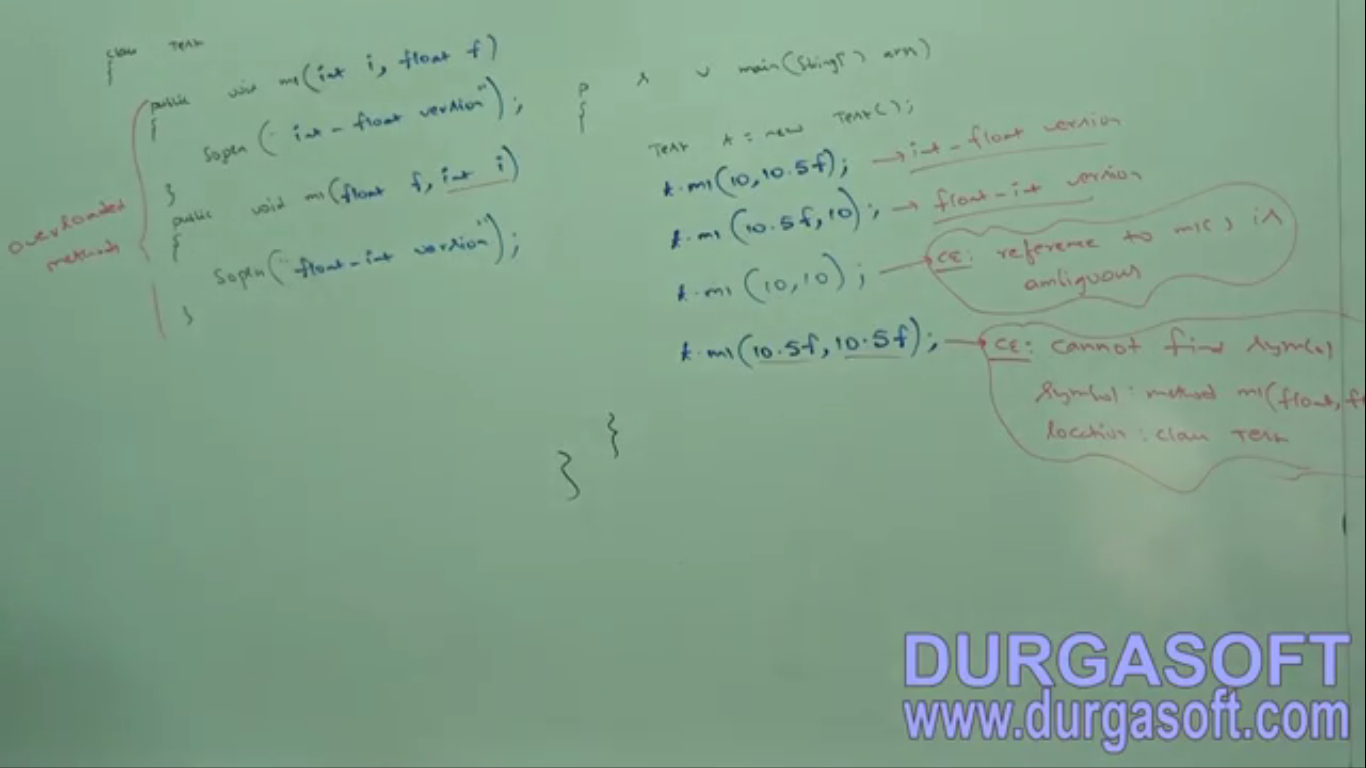 class Test
{
public void m1(int i, float f)
{
Sopln("int-float version");
}
public void m1(float f, int i)
{
Sopln("float-int version");
}
overloaded
methods
p s v main(String[] args)
{
Test t = new Test();
t.m1(10, 10.5f); → int-float version
t.m1(10.5f, 10); → float-int version
t.m1(10, 10); → CE: reference to m1() is
ambiguous
t.m1(10.5f, 10.5f); → CE: cannot find symbol
symbol: method m1(float, f
location: class Test
}
}
DURGASOFT
www.durgasoft.com